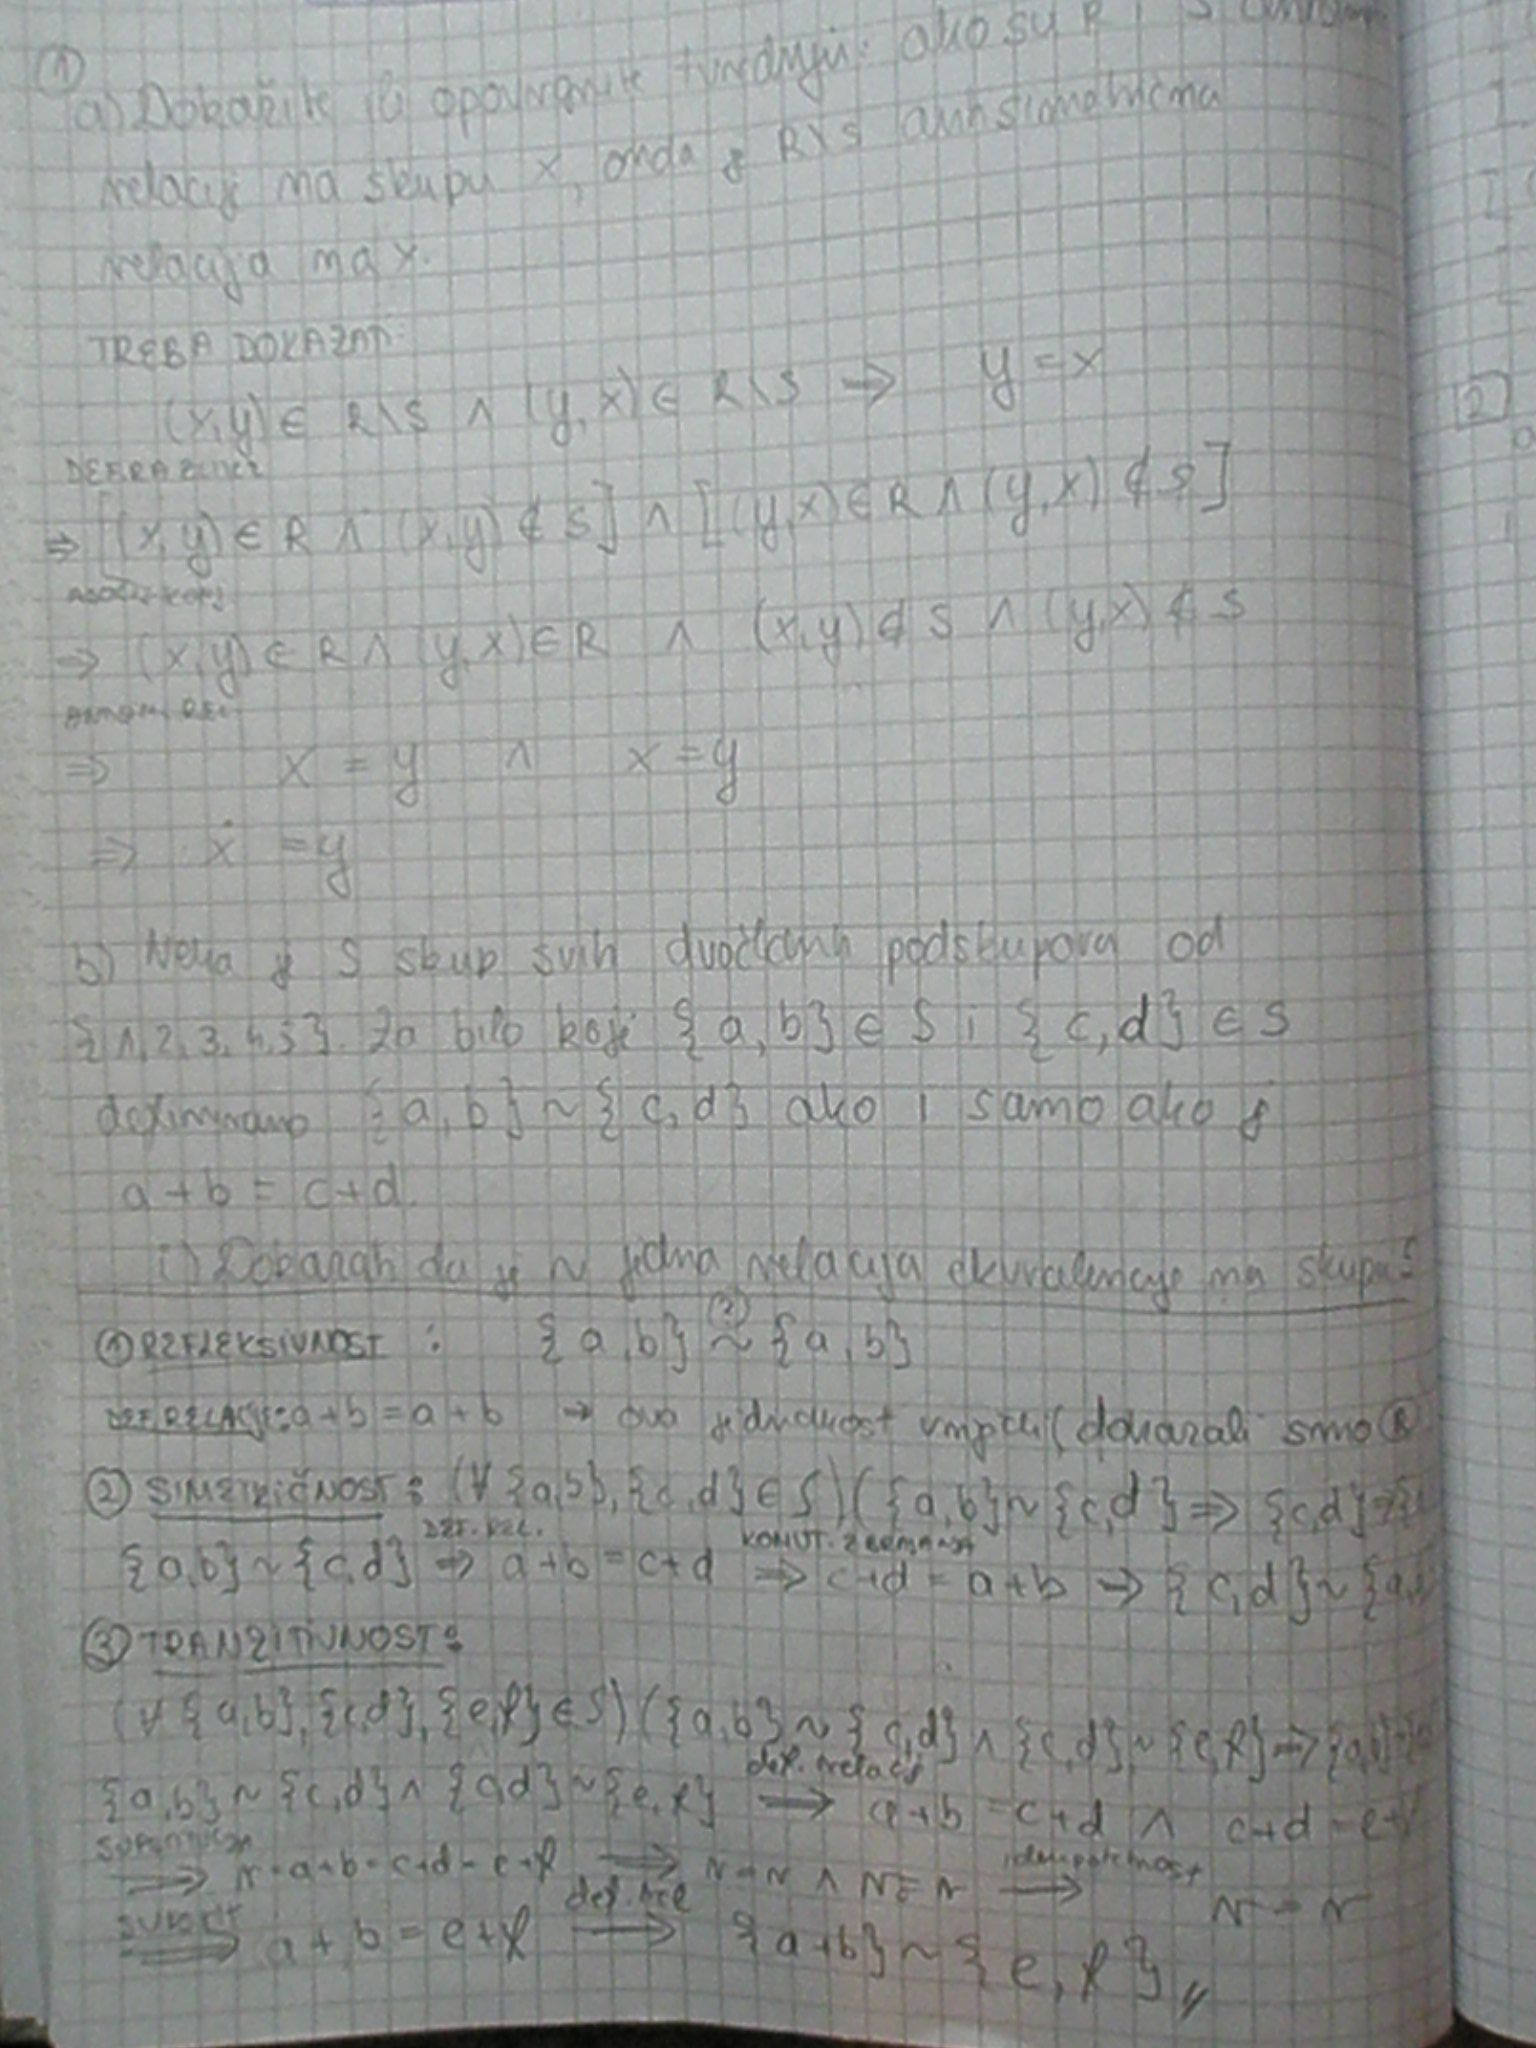 ①
a) Dokažite ili opovrgnite tvrdnju: ako su R i S
relacije na skupu X, onda je R\S antisimetrična
relacija na X.
TREBA DOKAZATI:
(x,y) ∈ R\S ∧ (y,x) ∈ R\S ⇒ y = x
DEF. RAZLIKE
⇒ [(x,y) ∈ R ∧ (x,y) ∉ S] ∧ [(y,x) ∈ R ∧ (y,x) ∉ S]
⇒ (x,y) ∈ R ∧ (y,x) ∈ R ∧ (x,y) ∉ S ∧ (y,x) ∉ S
⇒ x = y ∧ x = y
⇒ x = y
b) Neka je S skup svih dvočlanih podskupova od
{1,2,3,4,5}. Za bilo koje {a,b} ∈ S i {c,d} ∈ S
definiramo {a,b} ~ {c,d} ako i samo ako je
a+b = c+d.
i) Dokazati da je ~ jedna relacija ekvivalencije na skupu S
① REFLEKSIVNOST : {a,b} ~ (?) {a,b}
DEF. RELACIJE: a+b = a+b → ova jednakost vrijedi (dokazali smo Ⓡ
② SIMETRIČNOST : (∀{a,b},{c,d} ∈ S)({a,b} ~ {c,d} ⇒ {c,d} ~ {
DEF. REL. KOMUT. ZBRAJANJA
{a,b} ~ {c,d} ⇒ a+b = c+d ⇒ c+d = a+b ⇒ {c,d} ~ {a,
③ TRANZITIVNOST :
(∀{a,b},{c,d},{e,f} ∈ S)({a,b} ~ {c,d} ∧ {c,d} ~ {e,f} ⇒ {a,b} ~ {
def. relacije
{a,b} ~ {c,d} ∧ {c,d} ~ {e,f} ⇒ a+b = c+d ∧ c+d = e+f
SUPSTITUCIJA idempotentnost
⇒ r = a+b = c+d = e+f ⇒ r = r ∧ r = r ⇒ r = r
def. rel
⇒ a+b = e+f ⇒ {a+b} ~ {e,f} //
2